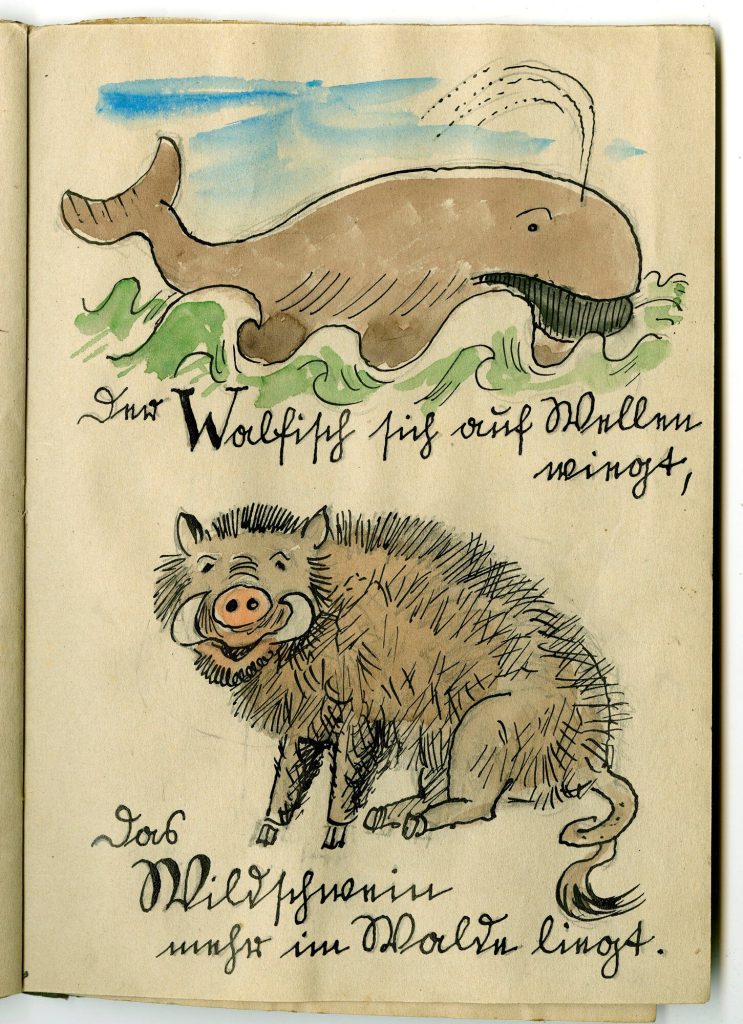 Der Walfisch sich auf Wellen
wiegt,
Das
Wildschwein
mehr im Walde liegt.